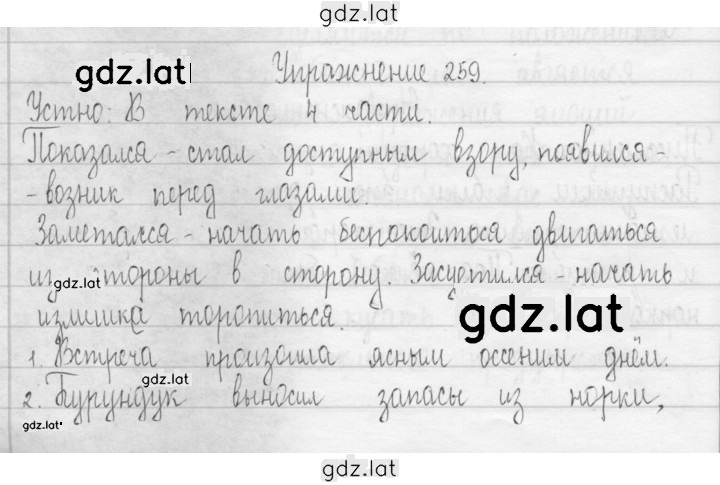 gdz.lat
gdz.lat Упражнение 259.
Устно: В тексте 4 части.
Показался - стал доступным взору, появился -
- возник перед глазами.
Заметался - начать беспокоиться двигаться
из стороны в сторону. Засуетился начать
gdz.lat
излишка торопиться.
gdz.lat
1. Встреча произошла ясным осенним днём.
gdz.lat
2. Бурундук выносил запасы из норки,
gdz.lat
gdz.lat